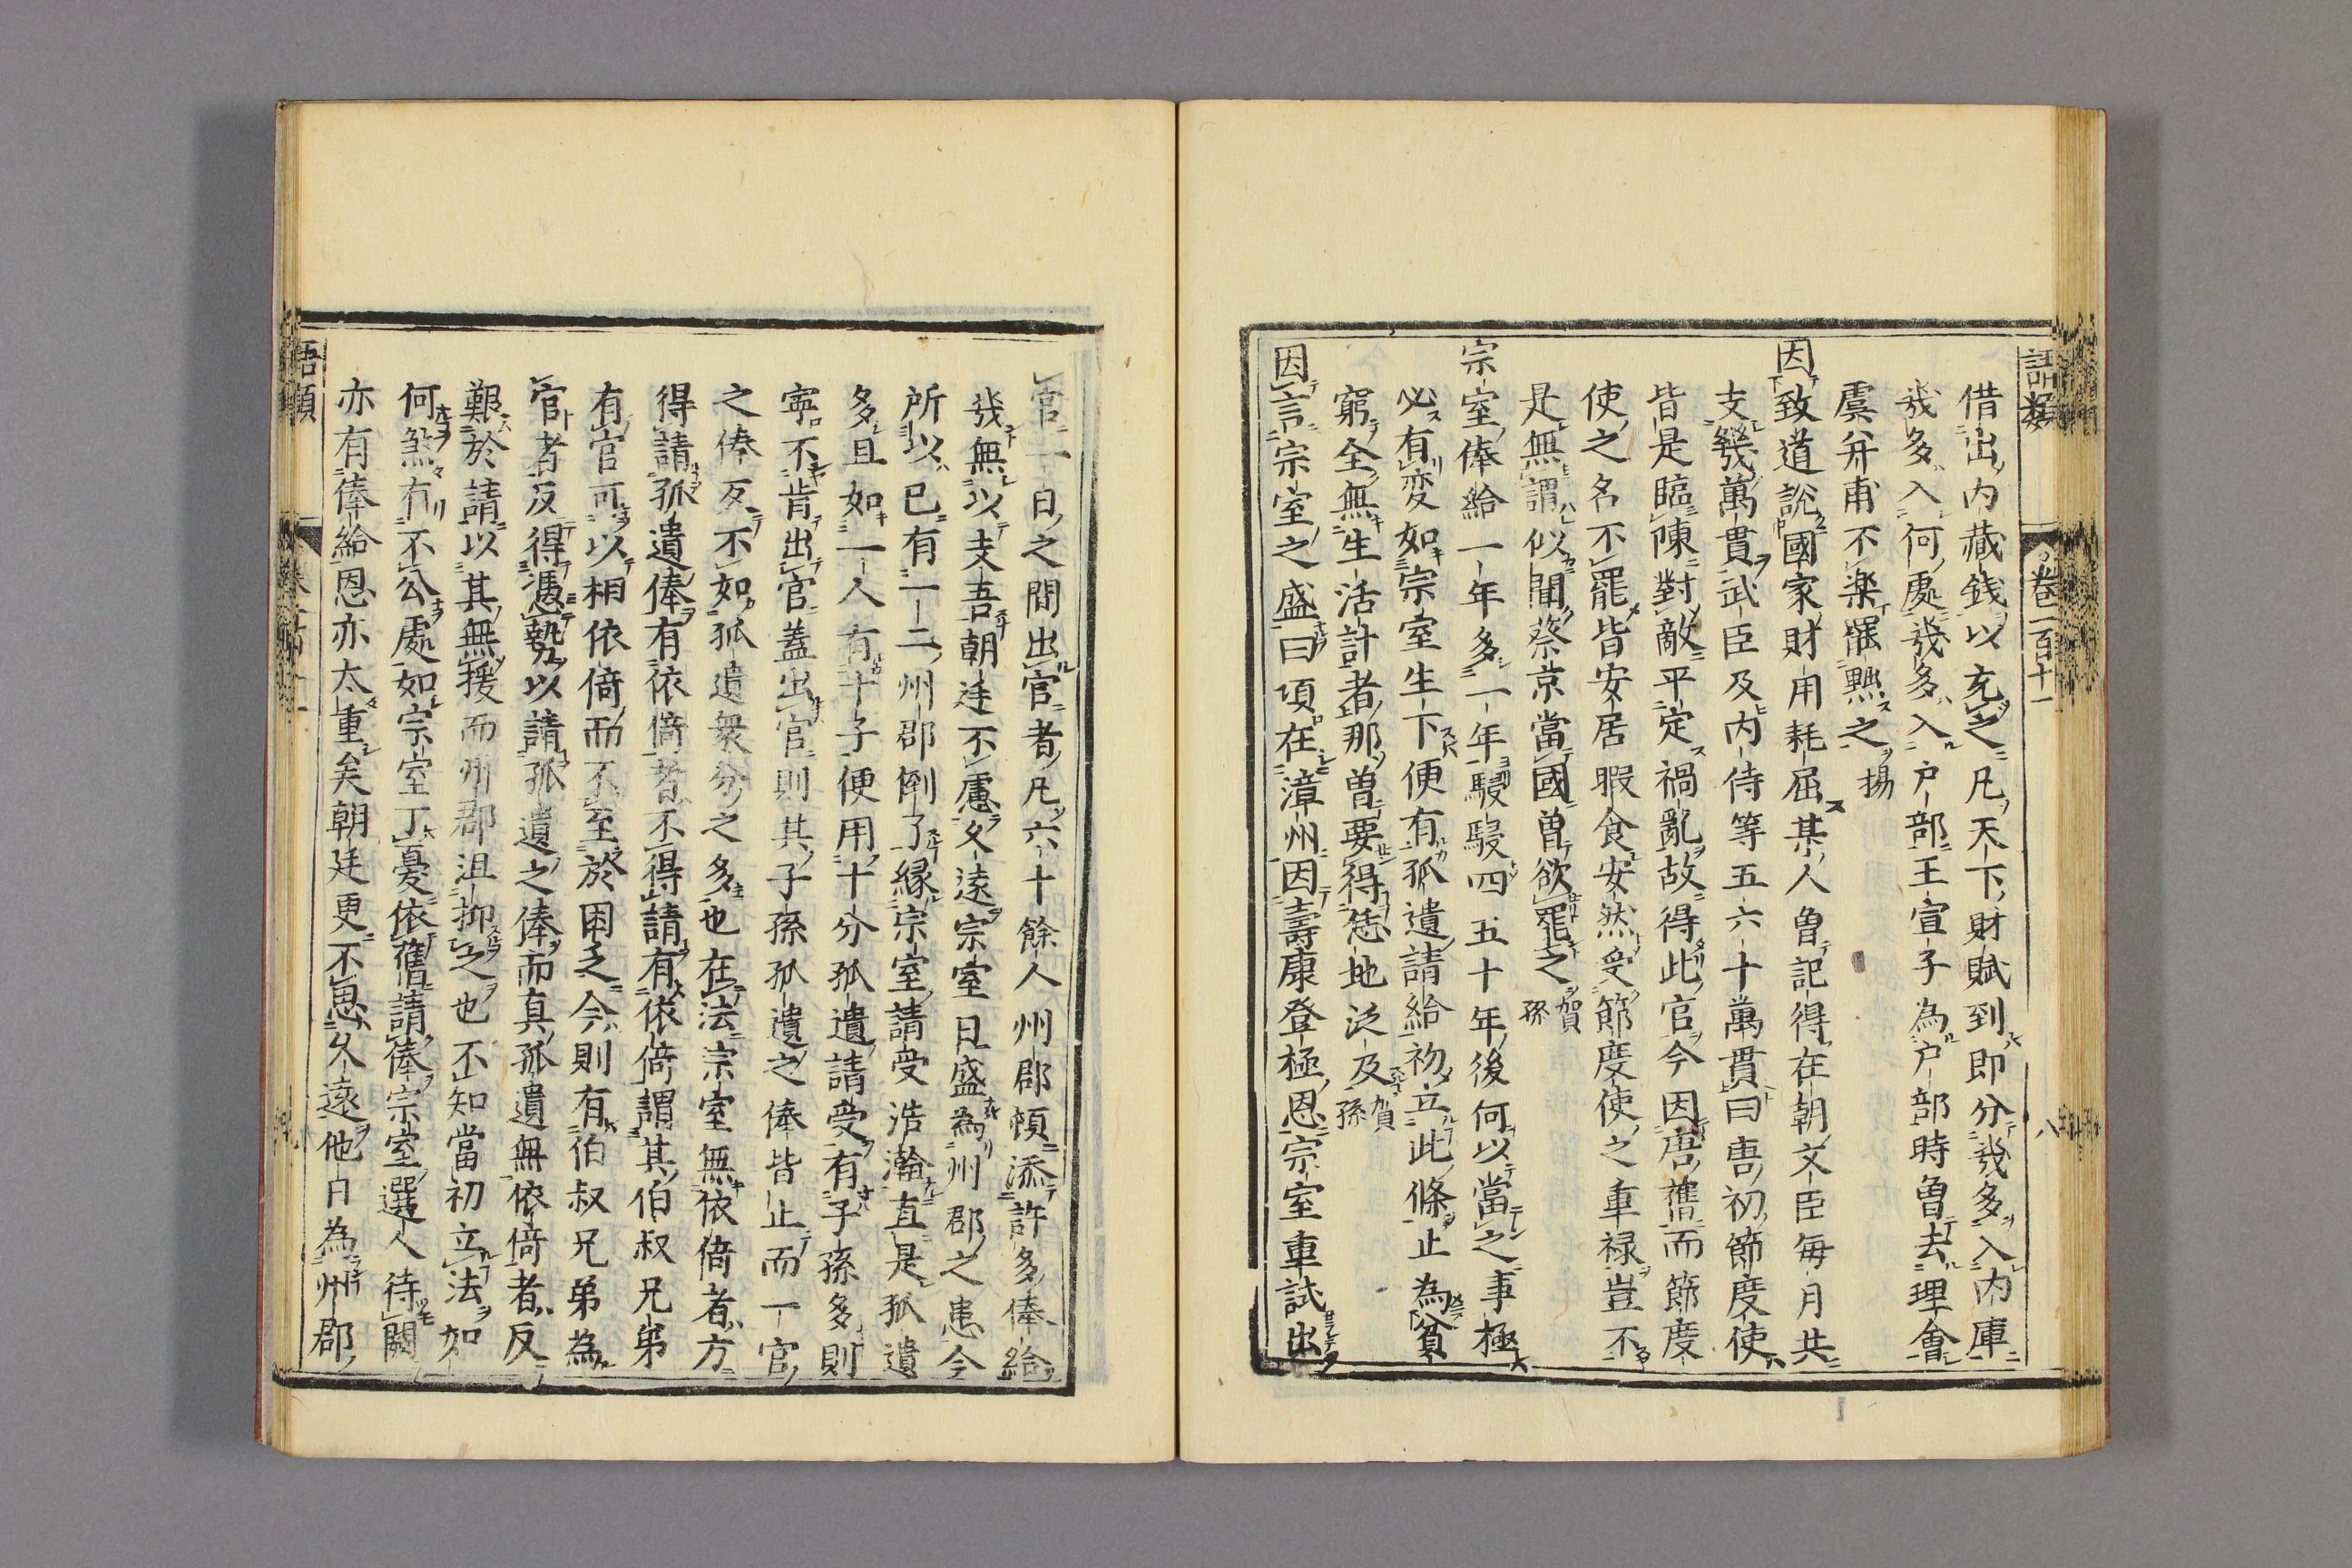 語類 卷一百十一 八
借出内藏錢以充之凡天下財賦到即分幾多入内庫
幾多入何處幾多入户部王宣子為户部時曽去理會
虞并甫不楽罷黜之揚
因致道説國家財用耗屈某人曽記得在朝文臣毎月共
支幾萬貫武臣及内侍等五六十萬貫曰唐初節度使
皆是臨陳對敵平定禍亂故得此官今因唐舊而節度
使之名不罷皆安居暇食安然受節度使之重禄豈不
是無謂似聞蔡京當國曽欲罷之賀孫
宗室俸給一年多一年駸駸四五十年後何以當之事極
必有変如宗室生下便有孤遺請給初立此條止為貧
窮全無生活計者那曽要得恁地泛及賀孫
因言宗室之盛曰項在漳州因壽康登極恩宗室重試出
官一日之間出官者凡六十餘人州郡頓添許多俸給
幾無以支吾朝廷不慮久遠宗室日盛為州郡之患今
所以已有一二州郡倒了縁宗室請受浩瀚直是孤遺
多且如一人有十子便用十分孤遺請受有子孫多則
寧不肯出官蓋出官則其子孫孤遺之俸皆止而一官
之俸反不如孤遺衆分之多也在法宗室無依倚者方
得請孤遺俸有依倚者不得請有依倚謂其伯叔兄弟
有官可以相依倚而不至於困乏今則有伯叔兄弟為
官者反得憑勢以請孤遺之俸而真孤遺無依倚者反
艱於請以其無援而州郡沮抑之也不知當初立法如
何煞有不公處如宗室丁憂依舊請俸宗室選人待闕
亦有俸給恩亦太重矣朝廷更不思久遠他日為州郡
語類